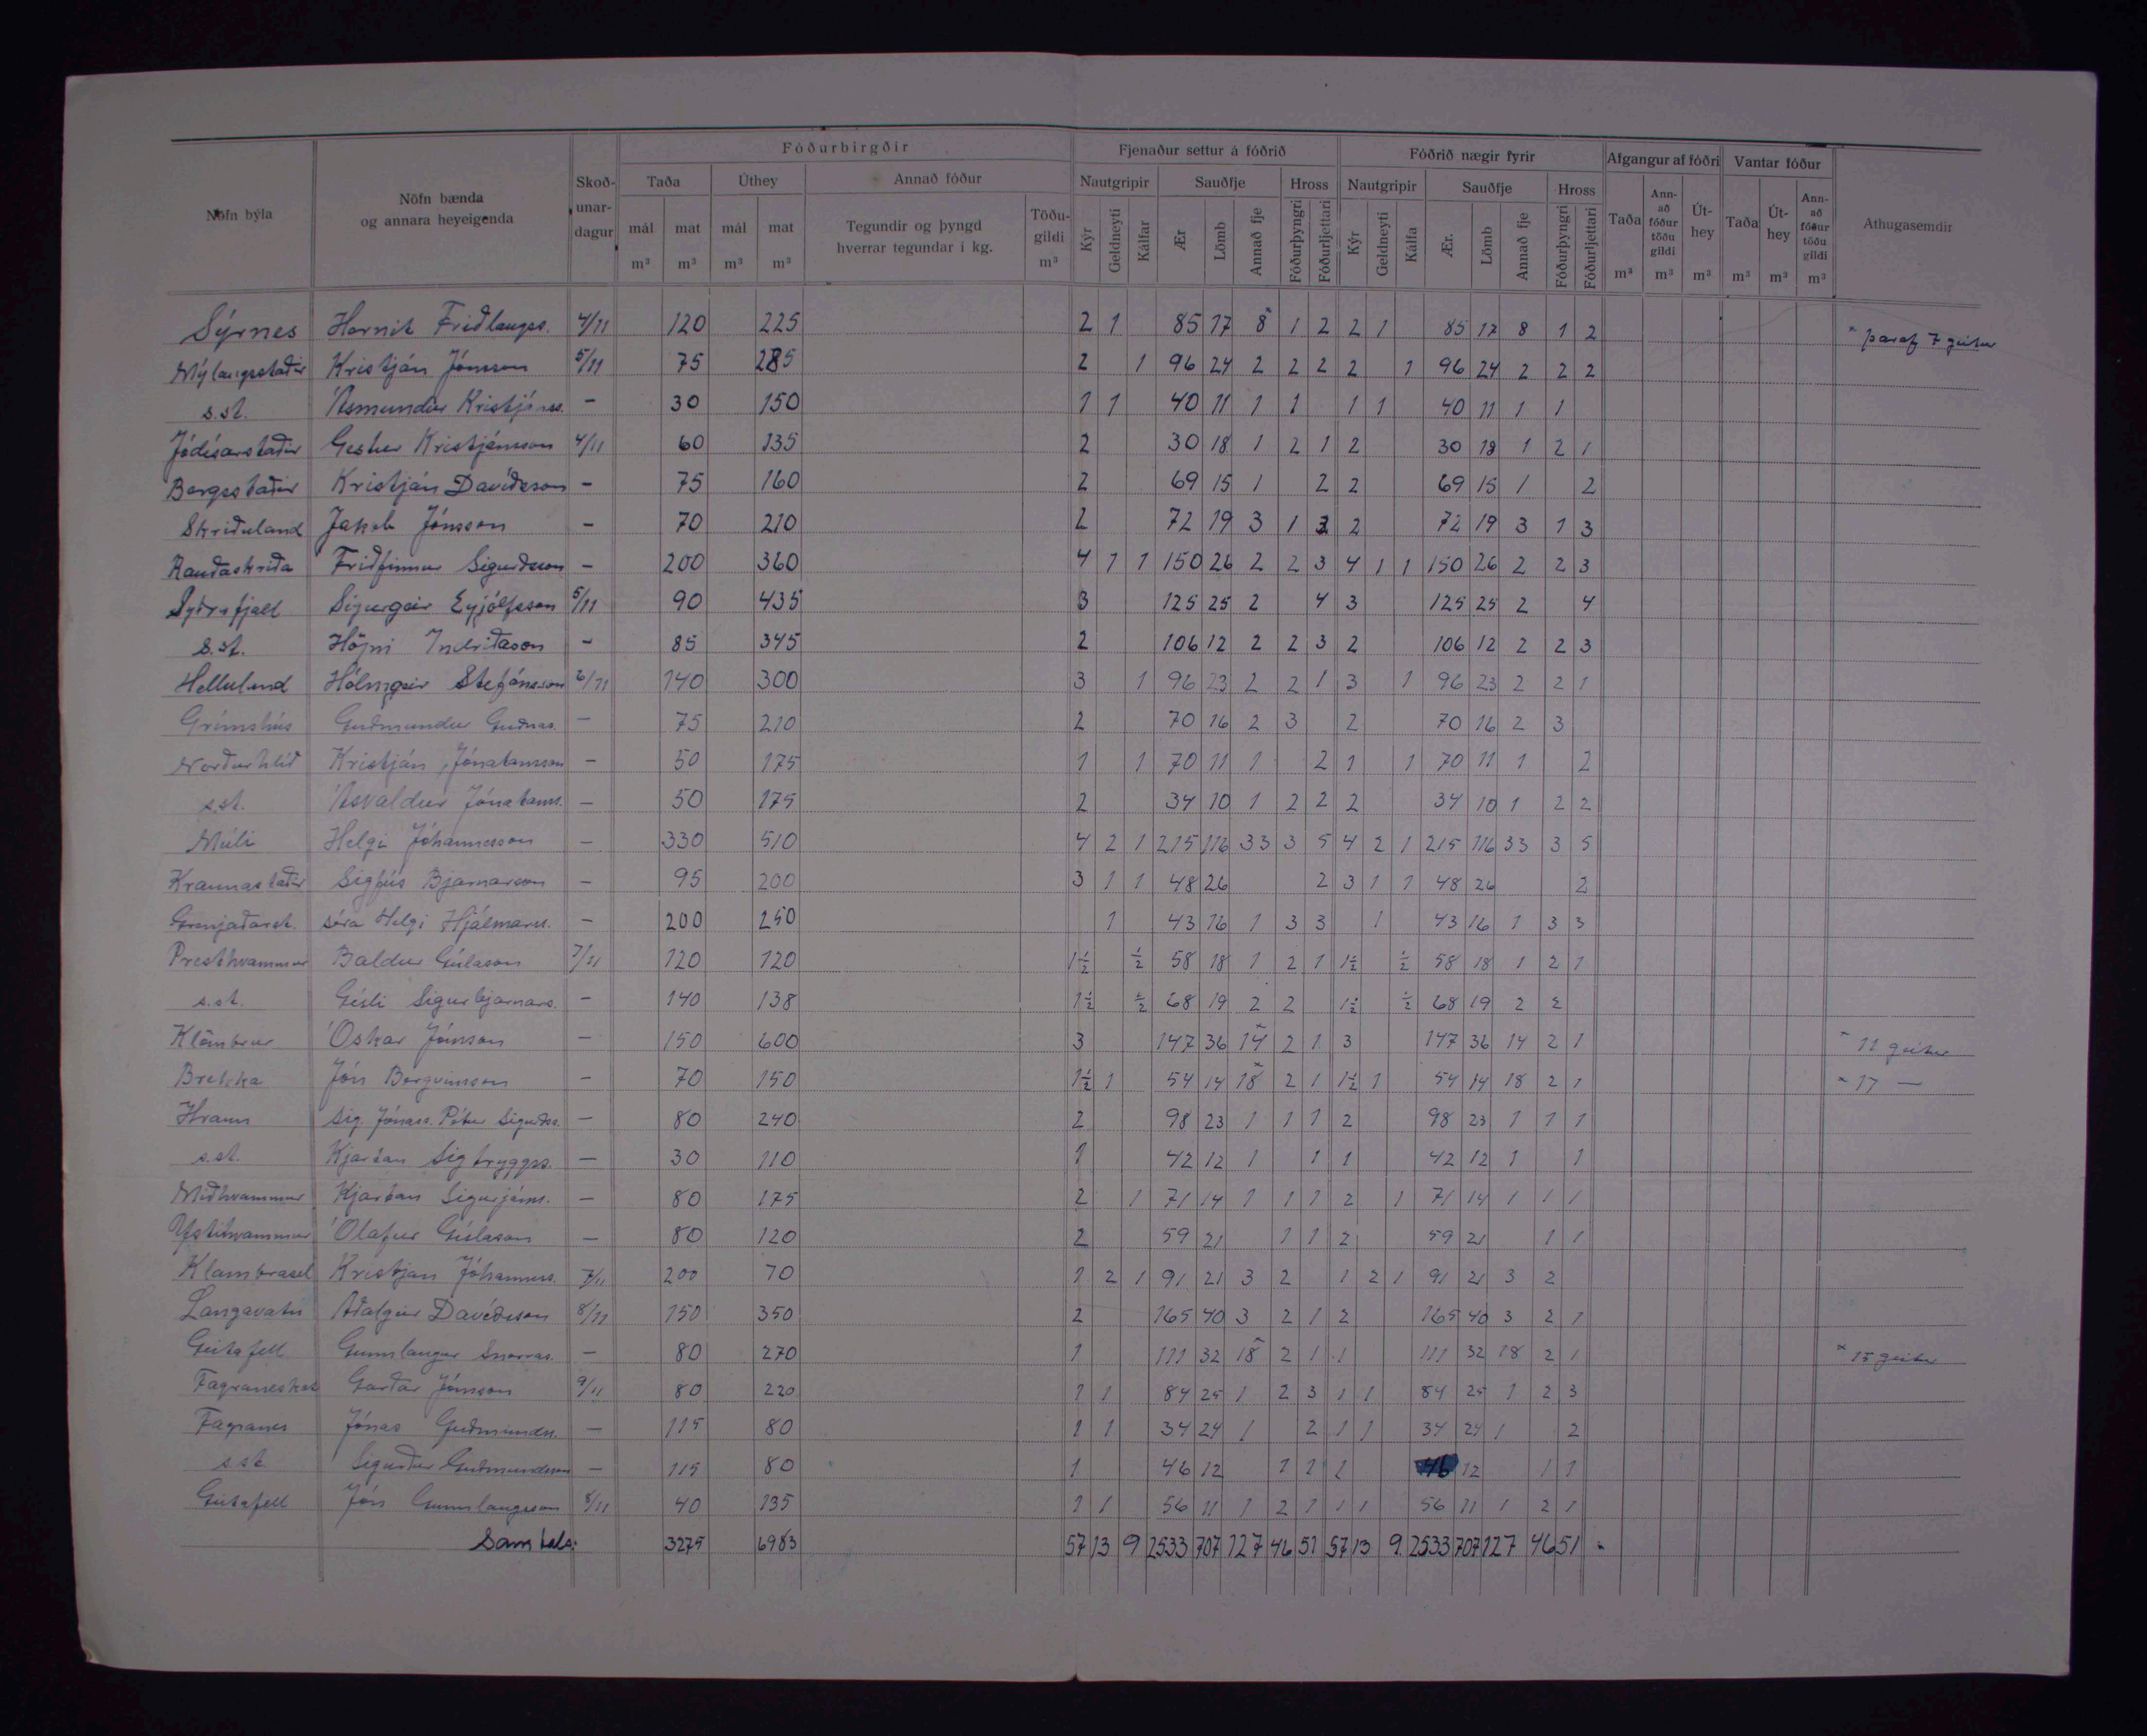 Fóðurbirgðir Fjenaður settur á fóðrið Fóðrið nægir fyrir Afgangur af fóðri Vantar fóður
Nöfn býla Nöfn bænda og annara heyeigenda Skoðunardagur Taða Úthey Annað fóður Nautgripir Sauðfje Hross Nautgripir Sauðfje Hross Taða Annað fóður töðu gildi Úthey Taða Úthey Annað fóður töðu gildi Athugasemdir
mál mat mál mat Tegundir og þyngd hverrar tegundar í kg. Töðugildi Kýr Geldneyti Kálfar Ær Lömb Annað fje Fóðurþyngri Fóðurljettari Kýr Geldneyti Kálfa Ær. Lömb Annað fje Fóðurþyngri Fóðurljettari
m³ m³ m³ m³ m³ m³ m³ m³ m³ m³ m³
Sýrnes Hernit Friðlaugss. 4/11 120 225 2 1 85 17 8 1 2 2 1 85 17 8 1 2 × þaraf 7 geitur
Mýlaugsstaðir Kristján Jónsson 5/11 75 285 2 1 96 24 2 2 2 2 1 96 24 2 2 2
s.st. Ásmundur Kristjánss. – 30 150 1 1 40 11 1 1 1 1 40 11 1 1
Jódísarstaðir Gestur Kristjánsson 4/11 60 135 2 30 18 1 2 1 2 30 18 1 2 1
Bergsstaðir Kristján Davíðsson – 75 160 2 69 15 1 2 2 69 15 1 2
Skriðuland Jakob Jónsson – 70 210 2 72 19 3 1 3 2 72 19 3 1 3
Rauðaskriða Friðfinnur Sigurðsson – 200 360 4 1 1 150 26 2 2 3 4 1 1 150 26 2 2 3
Syðrafjall Sigurgeir Eyjólfsson 5/11 90 435 3 125 25 2 4 3 125 25 2 4
s.st. Högni Indriðason – 85 345 2 106 12 2 2 3 2 106 12 2 2 3
Helluland Hólmgeir Stefánsson 6/11 140 300 3 1 96 23 2 2 1 3 1 96 23 2 2 1
Grímshús Guðmundur Guðnas. – 75 210 2 70 16 2 3 2 70 16 2 3
Norðurhlíð Kristján Jónatansson – 50 175 1 1 70 11 1 2 1 1 70 11 1 2
s.st. Ásvaldur Jónatanss. – 50 175 2 34 10 1 2 2 2 34 10 1 2 2
Múli Helgi Jóhannesson – 330 510 4 2 1 215 116 33 3 5 4 2 1 215 116 33 3 5
Kraunastaðir Sigfús Bjarnarson – 95 200 3 1 1 48 26 2 3 1 1 48 26 2
Grenjaðarst. séra Helgi Hjálmarss. – 200 250 1 43 16 1 3 3 1 43 16 1 3 3
Presthvammur Baldur Gíslason 7/11 120 120 1½ ½ 58 18 1 2 1 1½ ½ 58 18 1 2 1
s.st. Gísli Sigurbjarnars. – 140 138 1½ ½ 68 19 2 2 1½ ½ 68 19 2 2
Klömbrur Óskar Jónsson – 150 600 3 147 36 14 2 1 3 147 36 14 2 1 × 11 geitur
Brekka Jón Bergvinsson – 70 150 1½ 1 54 14 18 2 1 1½ 1 54 14 18 2 1 × 17 —
Hraun Sig. Jónass. Pétur Sigurðss. – 80 240 2 98 23 1 1 1 2 98 23 1 1 1
s.st. Kjartan Sigtryggss. – 30 110 1 42 12 1 1 1 42 12 1 1
Miðhvammur Kjartan Sigurjónss. – 80 175 2 1 71 14 1 1 1 2 1 71 14 1 1 1
Ystihvammur Ólafur Gíslason – 80 120 2 59 21 1 1 2 59 21 1 1
Klambrasel Kristján Jóhanness. 7/11 200 70 1 2 1 91 21 3 2 1 2 1 91 21 3 2
Langavatn Aðalgeir Davíðsson 8/11 150 350 2 165 40 3 2 1 2 165 40 3 2 1
Geitafell Gunnlaugur Snorras. – 80 270 1 111 32 18 2 1 1 111 32 18 2 1 × 15 geitur
Fagraneskot Garðar Jónsson 9/11 80 220 1 1 84 25 1 2 3 1 1 84 25 1 2 3
Fagranes Jónas Guðmundss. – 115 80 1 1 34 24 1 2 1 1 34 24 1 2
s.st. Sigurður Guðmundsson – 115 80 1 46 12 1 1 1 46 12 1 1
Geitafell Jón Gunnlaugsson 8/11 40 135 1 1 56 11 1 2 1 1 1 56 11 1 2 1
Samtals: 3275 6983 57 13 9 2533 707 127 46 51 57 13 9 2533 707 127 46 51